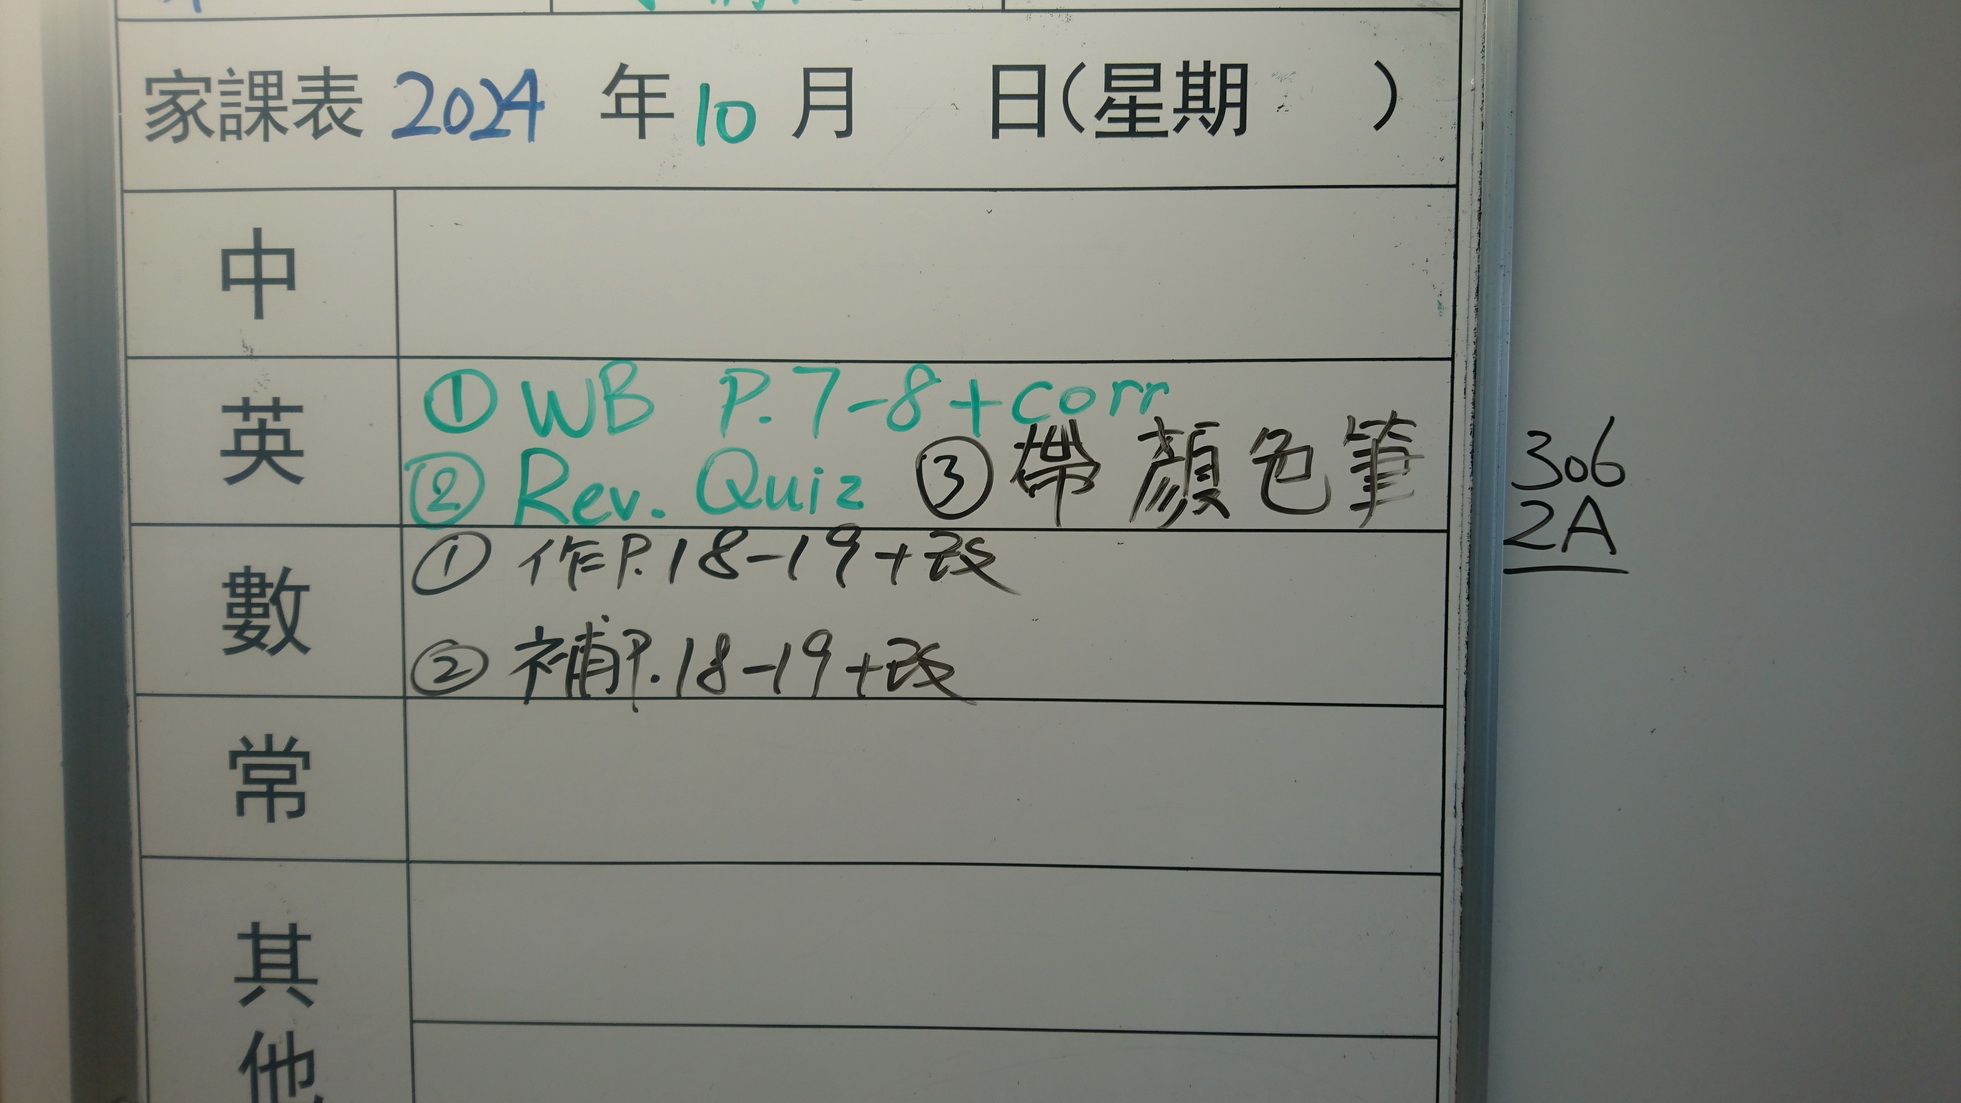 家課表 2024 年 10 月 日(星期 )
中
英
① WB P.7-8+corr
② Rev. Quiz ③ 帶顏色筆
數
① 作P.18-19+改
② 補P.18-19+改
常
其他
306
2A